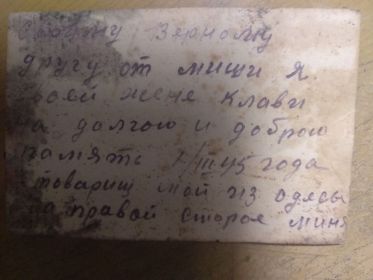 Верному
другу от миши я
воей жене Клави
а долгою и доброю
память 7/III 45 года
товарищ мой из одесы
на правой стороe миня